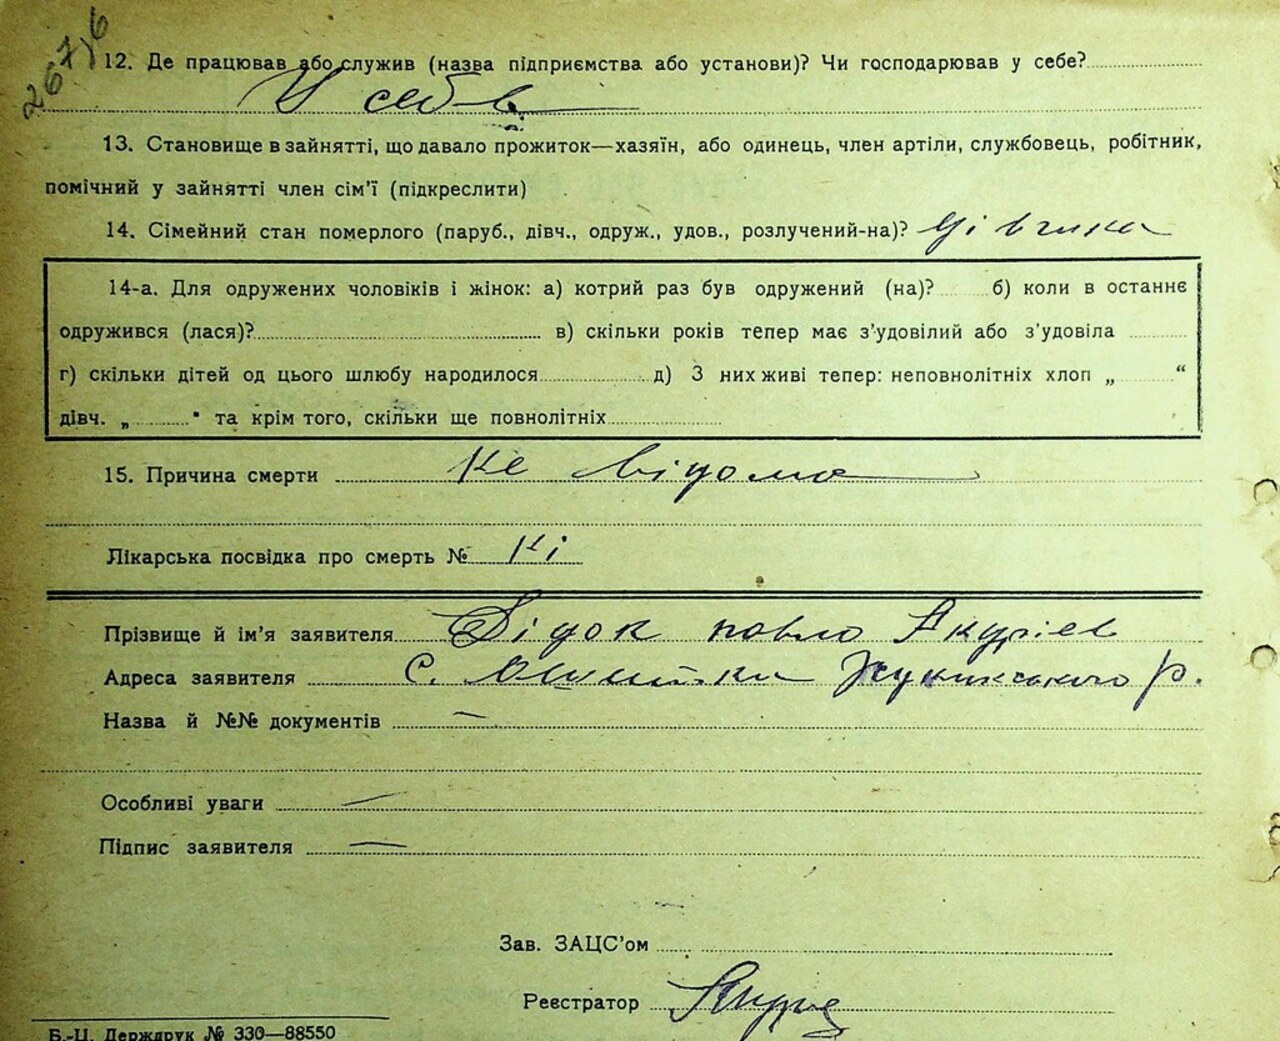 267,6
12. Де працював або служив (назва підприємства або установи)? Чи господарював у себе?
У себе
13. Становище в зайнятті, що давало прожиток—хазяїн, або одинець, член артіли, службовець, робітник,
помічний у зайнятті член сім'ї (підкреслити)
14. Сімейний стан померлого (паруб., дівч., одруж., удов., розлучений-на)?
14-а. Для одружених чоловіків і жінок: а) котрий раз був одружений (на)? б) коли в останнє
одружився (лася)? в) скільки років тепер має з'удовілий або з'удовіла
г) скільки дітей од цього шлюбу народилося д) З них живі тепер: неповнолітніх хлоп „ “
дівч. „ " та крім того, скільки ще повнолітніх
15. Причина смерти не відома
Лікарська посвідка про смерть № Ні
Прізвище й ім'я заявителя Дідок Павло
Адреса заявителя С. р.
Назва й №№ документів —
Особливі уваги —
Підпис заявителя —
Зав. ЗАЦС'ом
Реєстратор
Б.-Ц. Держдрук № 330—88550